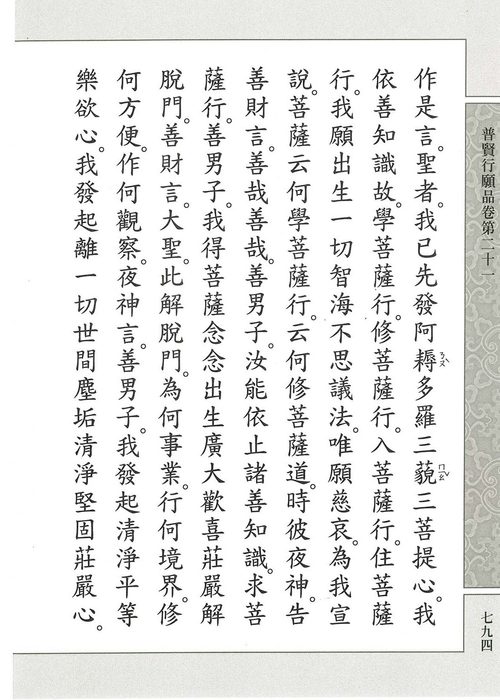 普賢行願品卷第二十一
作是言。聖者。我已先發阿耨ㄋㄡˋ多羅三藐ㄇㄧㄠˇ三菩提心。我
依善知識故。學菩薩行。修菩薩行。入菩薩行。住菩薩
行。我願出生一切智海不思議法。唯願慈哀。為我宣
說。菩薩云何學菩薩行。云何修菩薩道。時彼夜神。告
善財言。善哉善哉。善男子。汝能依止諸善知識。求菩
薩行。善男子。我得菩薩念念出生廣大歡喜莊嚴解
脫門。善財言。大聖。此解脫門。為何事業。行何境界。修
何方便。作何觀察。夜神言。善男子。我發起清淨平等
樂欲心。我發起離一切世間塵垢清淨堅固莊嚴心。
七九四